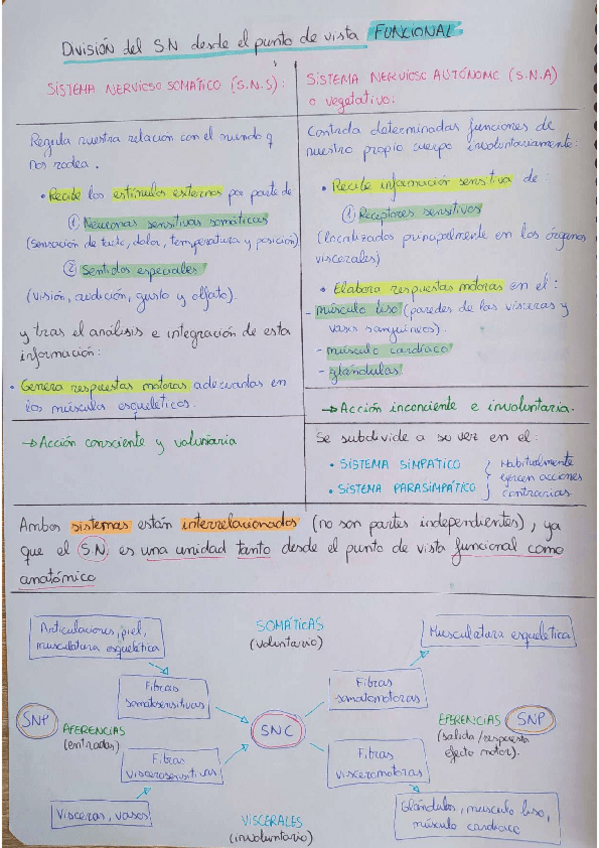 División del SN desde el punto de vista FUNCIONAL
SISTEMA NERVIOSO SOMÁTICO (S.N.S):
Regula nuestra relación con el mundo q
nos rodea.
• Recibe los estímulos externos por parte de
① Neuronas sensitivas somáticas
(sensación de tacto, dolor, temperatura y posición)
② Sentidos especiales
(visión, audición, gusto y olfato).
y tras el análisis e integración de esta
información:
• Genera respuestas motoras adecuadas en
los músculos esqueléticos.
→ Acción consciente y voluntaria
SISTEMA NERVIOSO AUTÓNOMO (S.N.A)
o vegetativo:
Controla determinadas funciones de
nuestro propio cuerpo involuntariamente:
• Recibe información sensitiva de:
① Receptores sensitivos
(localizados principalmente en los órganos
viscerales)
• Elabora respuestas motoras en el:
- músculo liso (paredes de las vísceras y
vasos sanguíneos).
- músculo cardíaco
- glándulas.
→ Acción inconciente e involuntaria.
Se subdivide a su vez en el:
• SISTEMA SIMPÁTICO
• SISTEMA PARASIMPÁTICO
Habitualmente
ejercen acciones
contrarias
Ambos sistemas están interrelacionados (no son partes independientes), ya
que el S.N. es una unidad tanto desde el punto de vista funcional como
anatómico
Articulaciones, piel,
musculatura esquelética
SOMÁTICAS
(voluntario)
Musculatura esquelética
Fibras
somatosensitivas
Fibras
somatomotoras
SNP
AFERENCIAS
(entradas)
SNC
EFERENCIAS
(salida/respuesta
efecto motor).
SNP
Fibras
viscerosensitivas
Fibras
visceromotoras
Vísceras, vasos
VISCERALES
(involuntario)
Glándulas, musculo liso,
músculo cardíaco